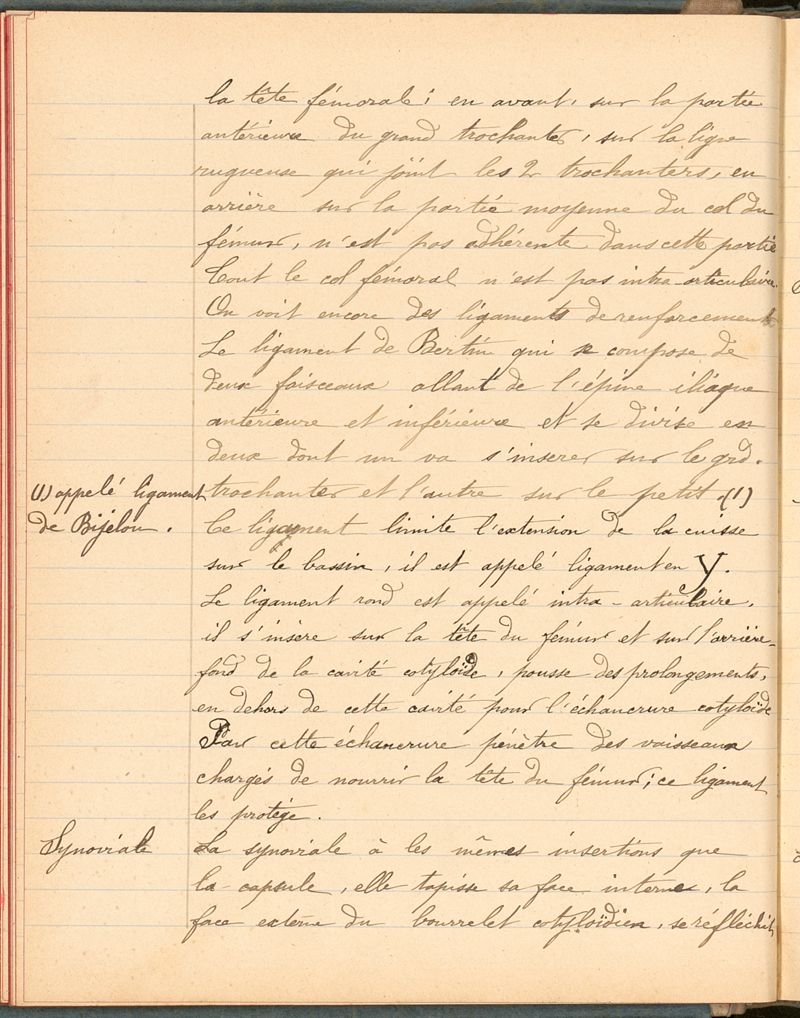 la tête fémorale; en avant, sur la partie
antérieure du grand trochanter, sur la ligne
rugueuse qui joint les 2 trochanters, en
arrière sur la partie moyenne du col du
fémur, n'est pas adhérente dans cette partie
Tout le col fémoral n'est pas intra-articulaire.
On voit encore des ligaments de renforcement
Le ligament de Bertin qui se compose de
deux faisceaux allant de l'épine iliaque
antérieure et inférieure et se divise en
deux dont un va s'inserer sur le grd.
(1) appelé ligament
de Bijelou.
trochanter et l'autre sur le petit. (1)
Ce ligament limite l'extension de la cuisse
sur le bassin, il est appelé ligament en Y.
Le ligament rond est appelé intra-articulaire.
il s'insère sur la tête du fémur et sur l'arrière-
fond de la cavité cotyloïde, pousse des prolongements,
en dehors de cette cavité pour l'échancrure cotyloïde
Par cette échancrure pénètre des vaisseaux
chargés de nourrir la tête du fémur; ce ligament
les protége.
Synoviale
La synoviale à les mêmes insertions que
la capsule, elle tapisse sa face interne, la
face externe du bourrelet cotyloïdien, se réfléchit